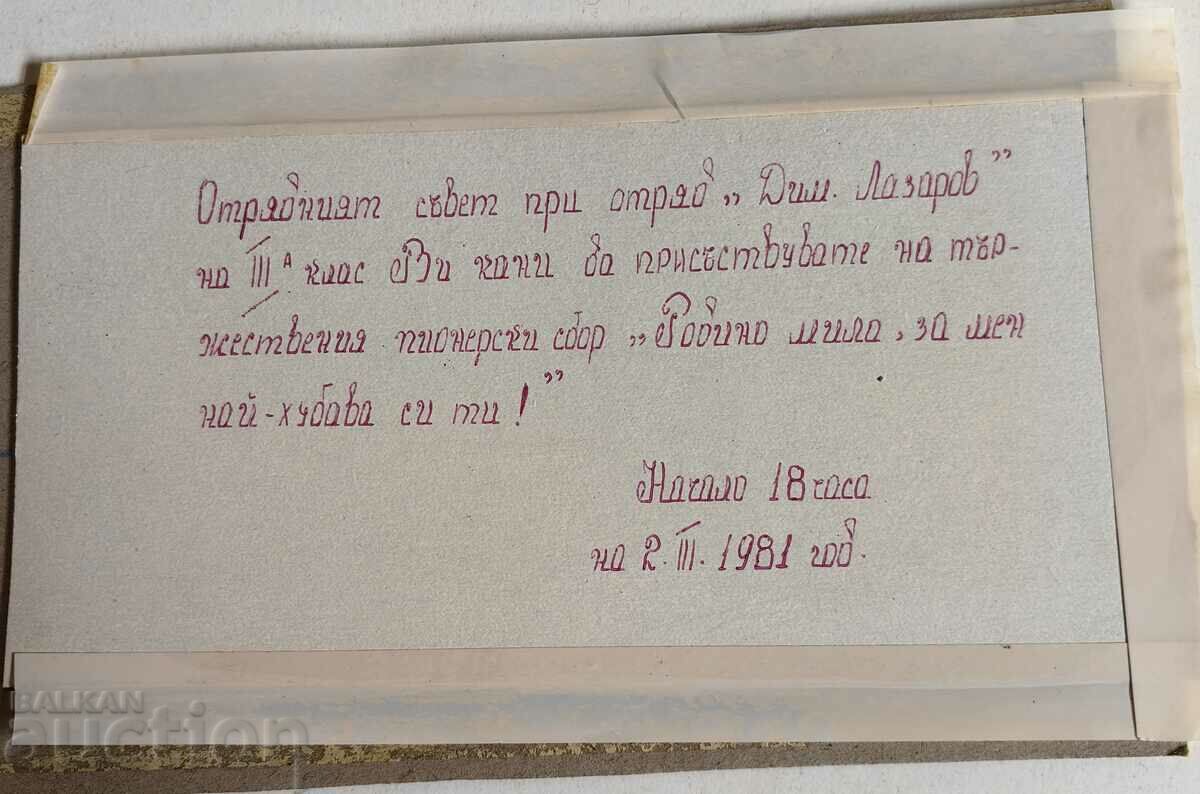 Отрядният съвет при отряд „Дим. Лазаров”
на III А клас Ви кани да присъствувате на тър-
жествения пионерски сбор „Родино мила, за мен
най-хубава си ти!”
Начало 18 часа
на 2. III. 1981 год.
BALKAN
auction